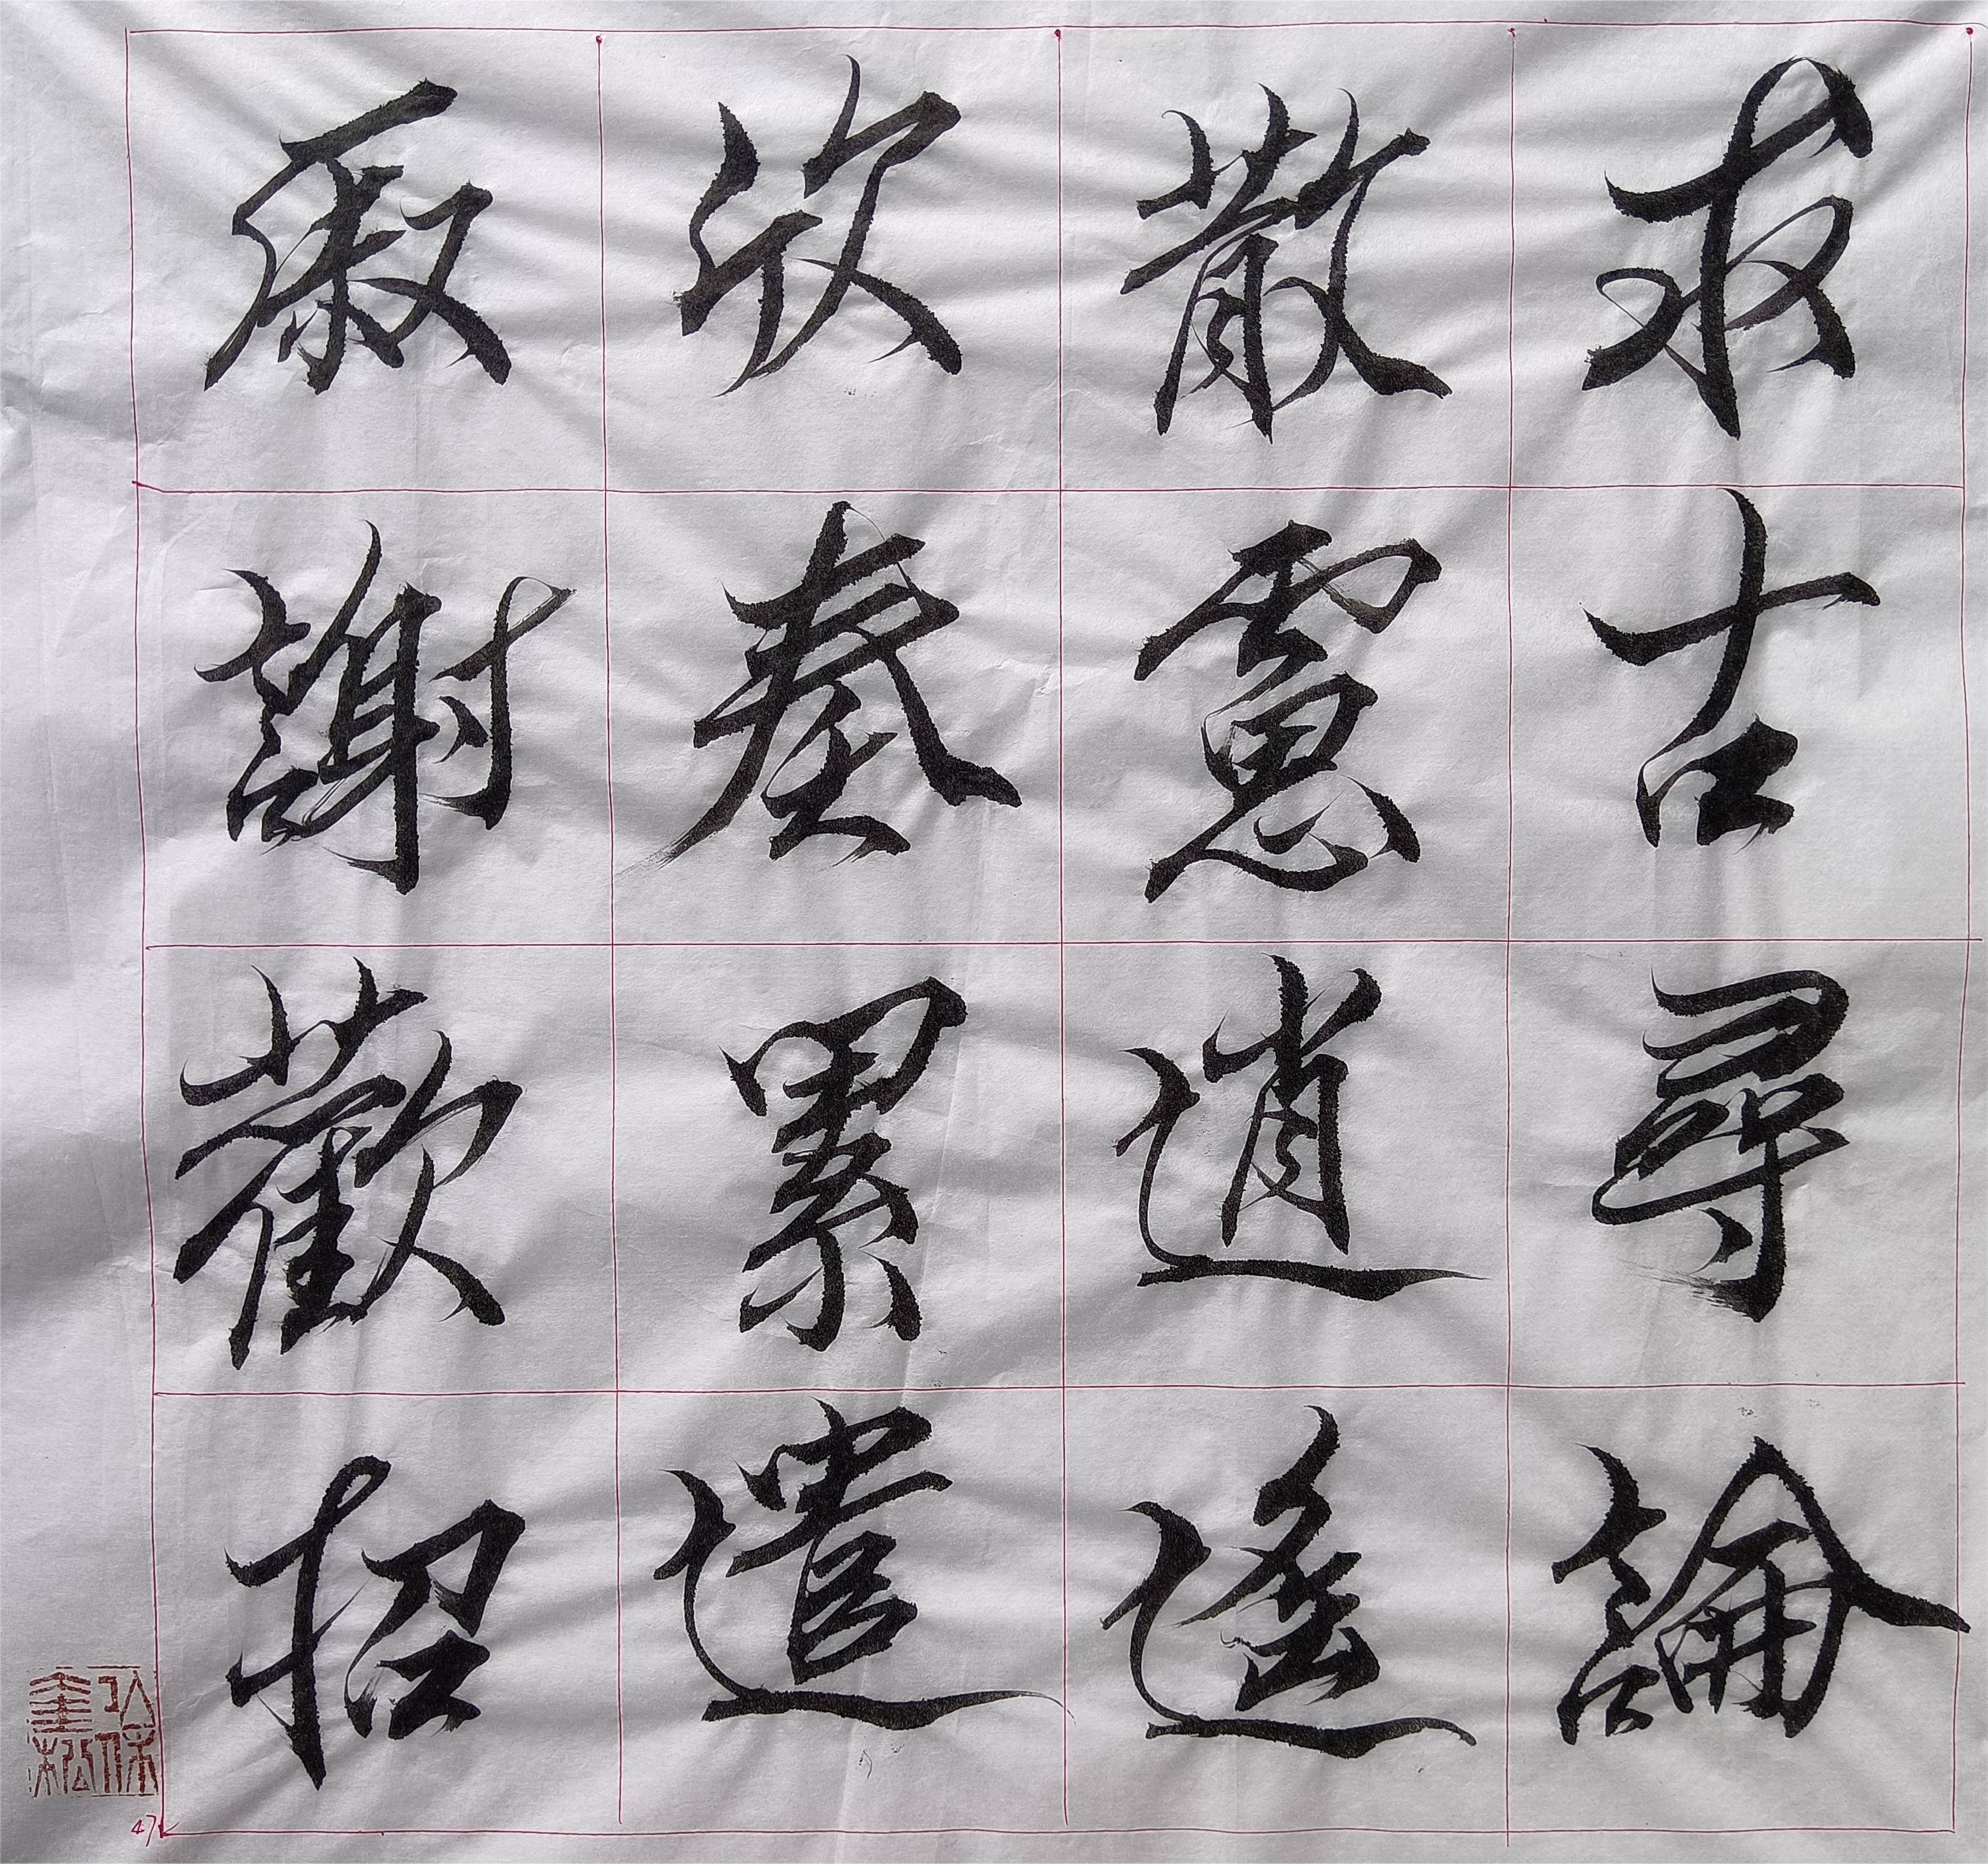 求古尋論
散慮逍遙
欣奏累遣
戚謝歡招
47